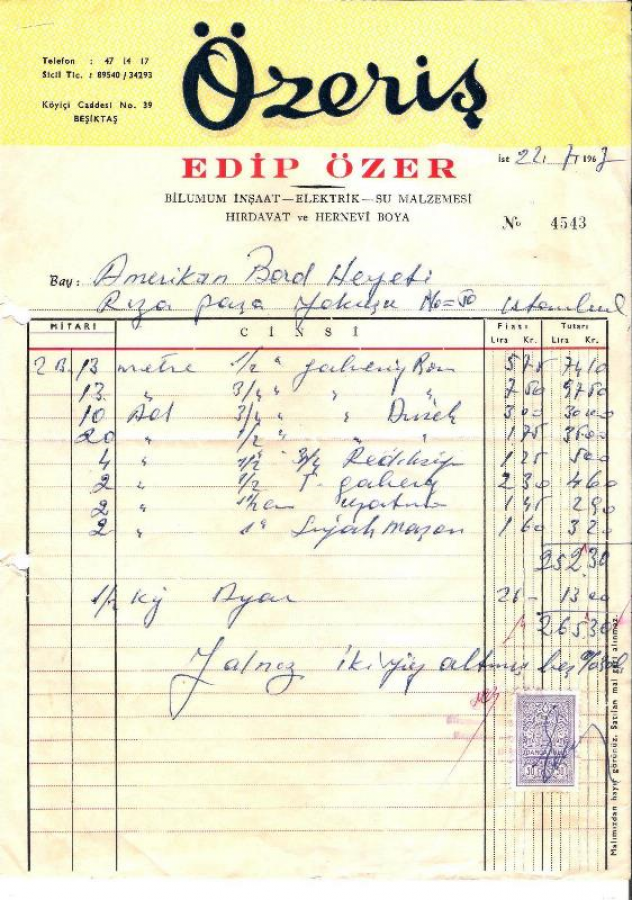 Telefon : 47 14 17
Sicil Tic. : 89540 / 34293
Köyiçi Caddesi No. 39
BEŞİKTAŞ
Özeriş
EDİP ÖZER
BİLUMUM İNŞAAT—ELEKTRİK—SU MALZEMESİ
HIRDAVAT ve HERNEVİ BOYA
ist 22. 7 196
No 4543
Bay : Amerikan Bord Heyeti
Rıza paşa Yokuşu No=50 istanbul
MİTARI CİNSİ Fiatı Tutarı
Lira Kr. Lira Kr.
2 B. 13 metre 1/2 " galveniz 575 7410
13 " 3/4 " " " 750 9750
10 Ad 3/4 " " Dirsek 300 3000
20 " 1/2 " " " 175 3500
4 " 1/2 " 3/4 Rediksiyon 125 500
2 " 1/2 T. galveniz 230 460
2 " uzatma 145 290
2 " 1" 160 320
252 30
1/2 Kğ 26 - 13 00
265 30
Yalnız ikiyüz altmış beş
Malımızdan hayır görünüz. Satılan mal geri alınmaz.
50 50